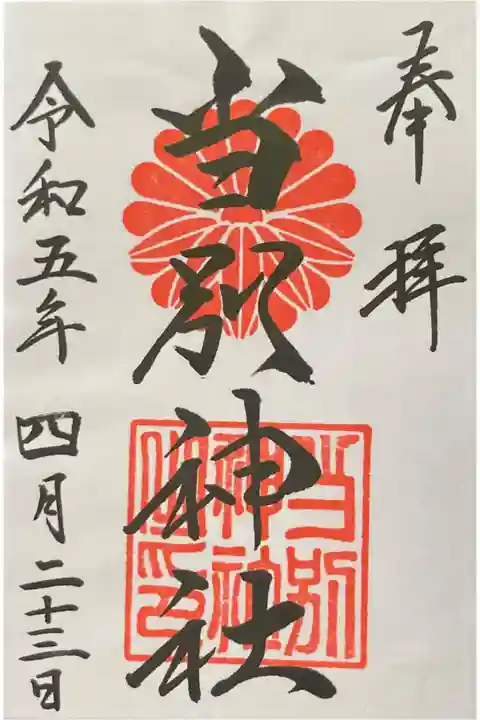 奉拝
当別神社
当別
神社
之印
令和五年 四月二十三日